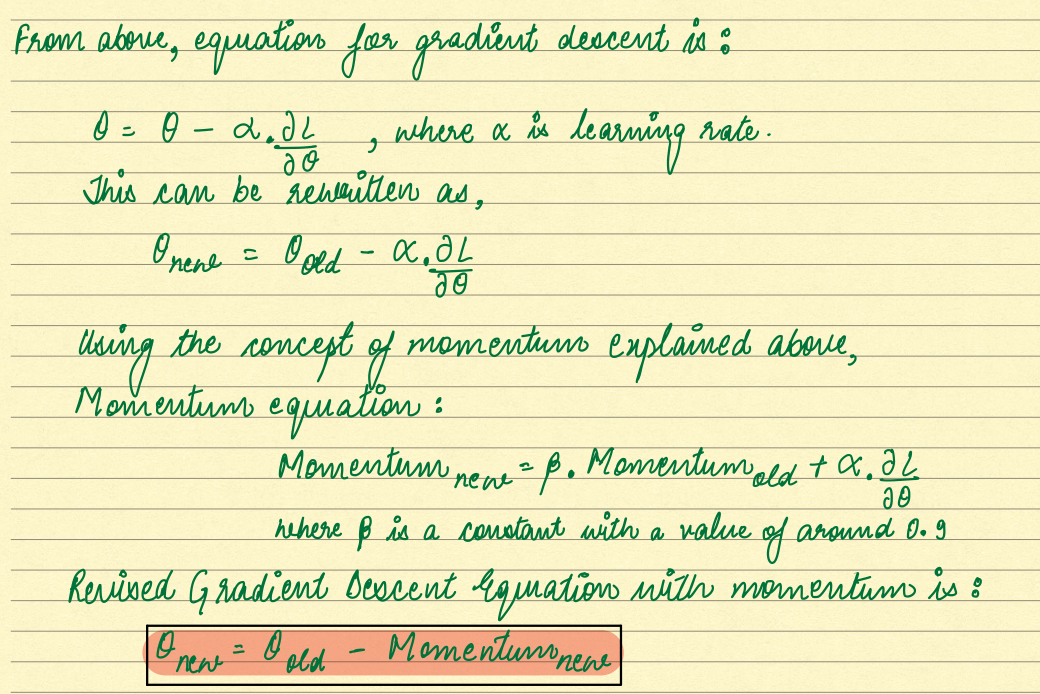 From above, equation for gradient descent is :
θ = θ - α . ∂L/∂θ , where α is learning rate.
This can be rewritten as,
θ new = θ old - α . ∂L/∂θ
Using the concept of momentum explained above,
Momentum equation :
Momentum new = β . Momentum old + α . ∂L/∂θ
where β is a constant with a value of around 0.9
Revised Gradient Descent Equation with momentum is :
θ new = θ old - Momentum new